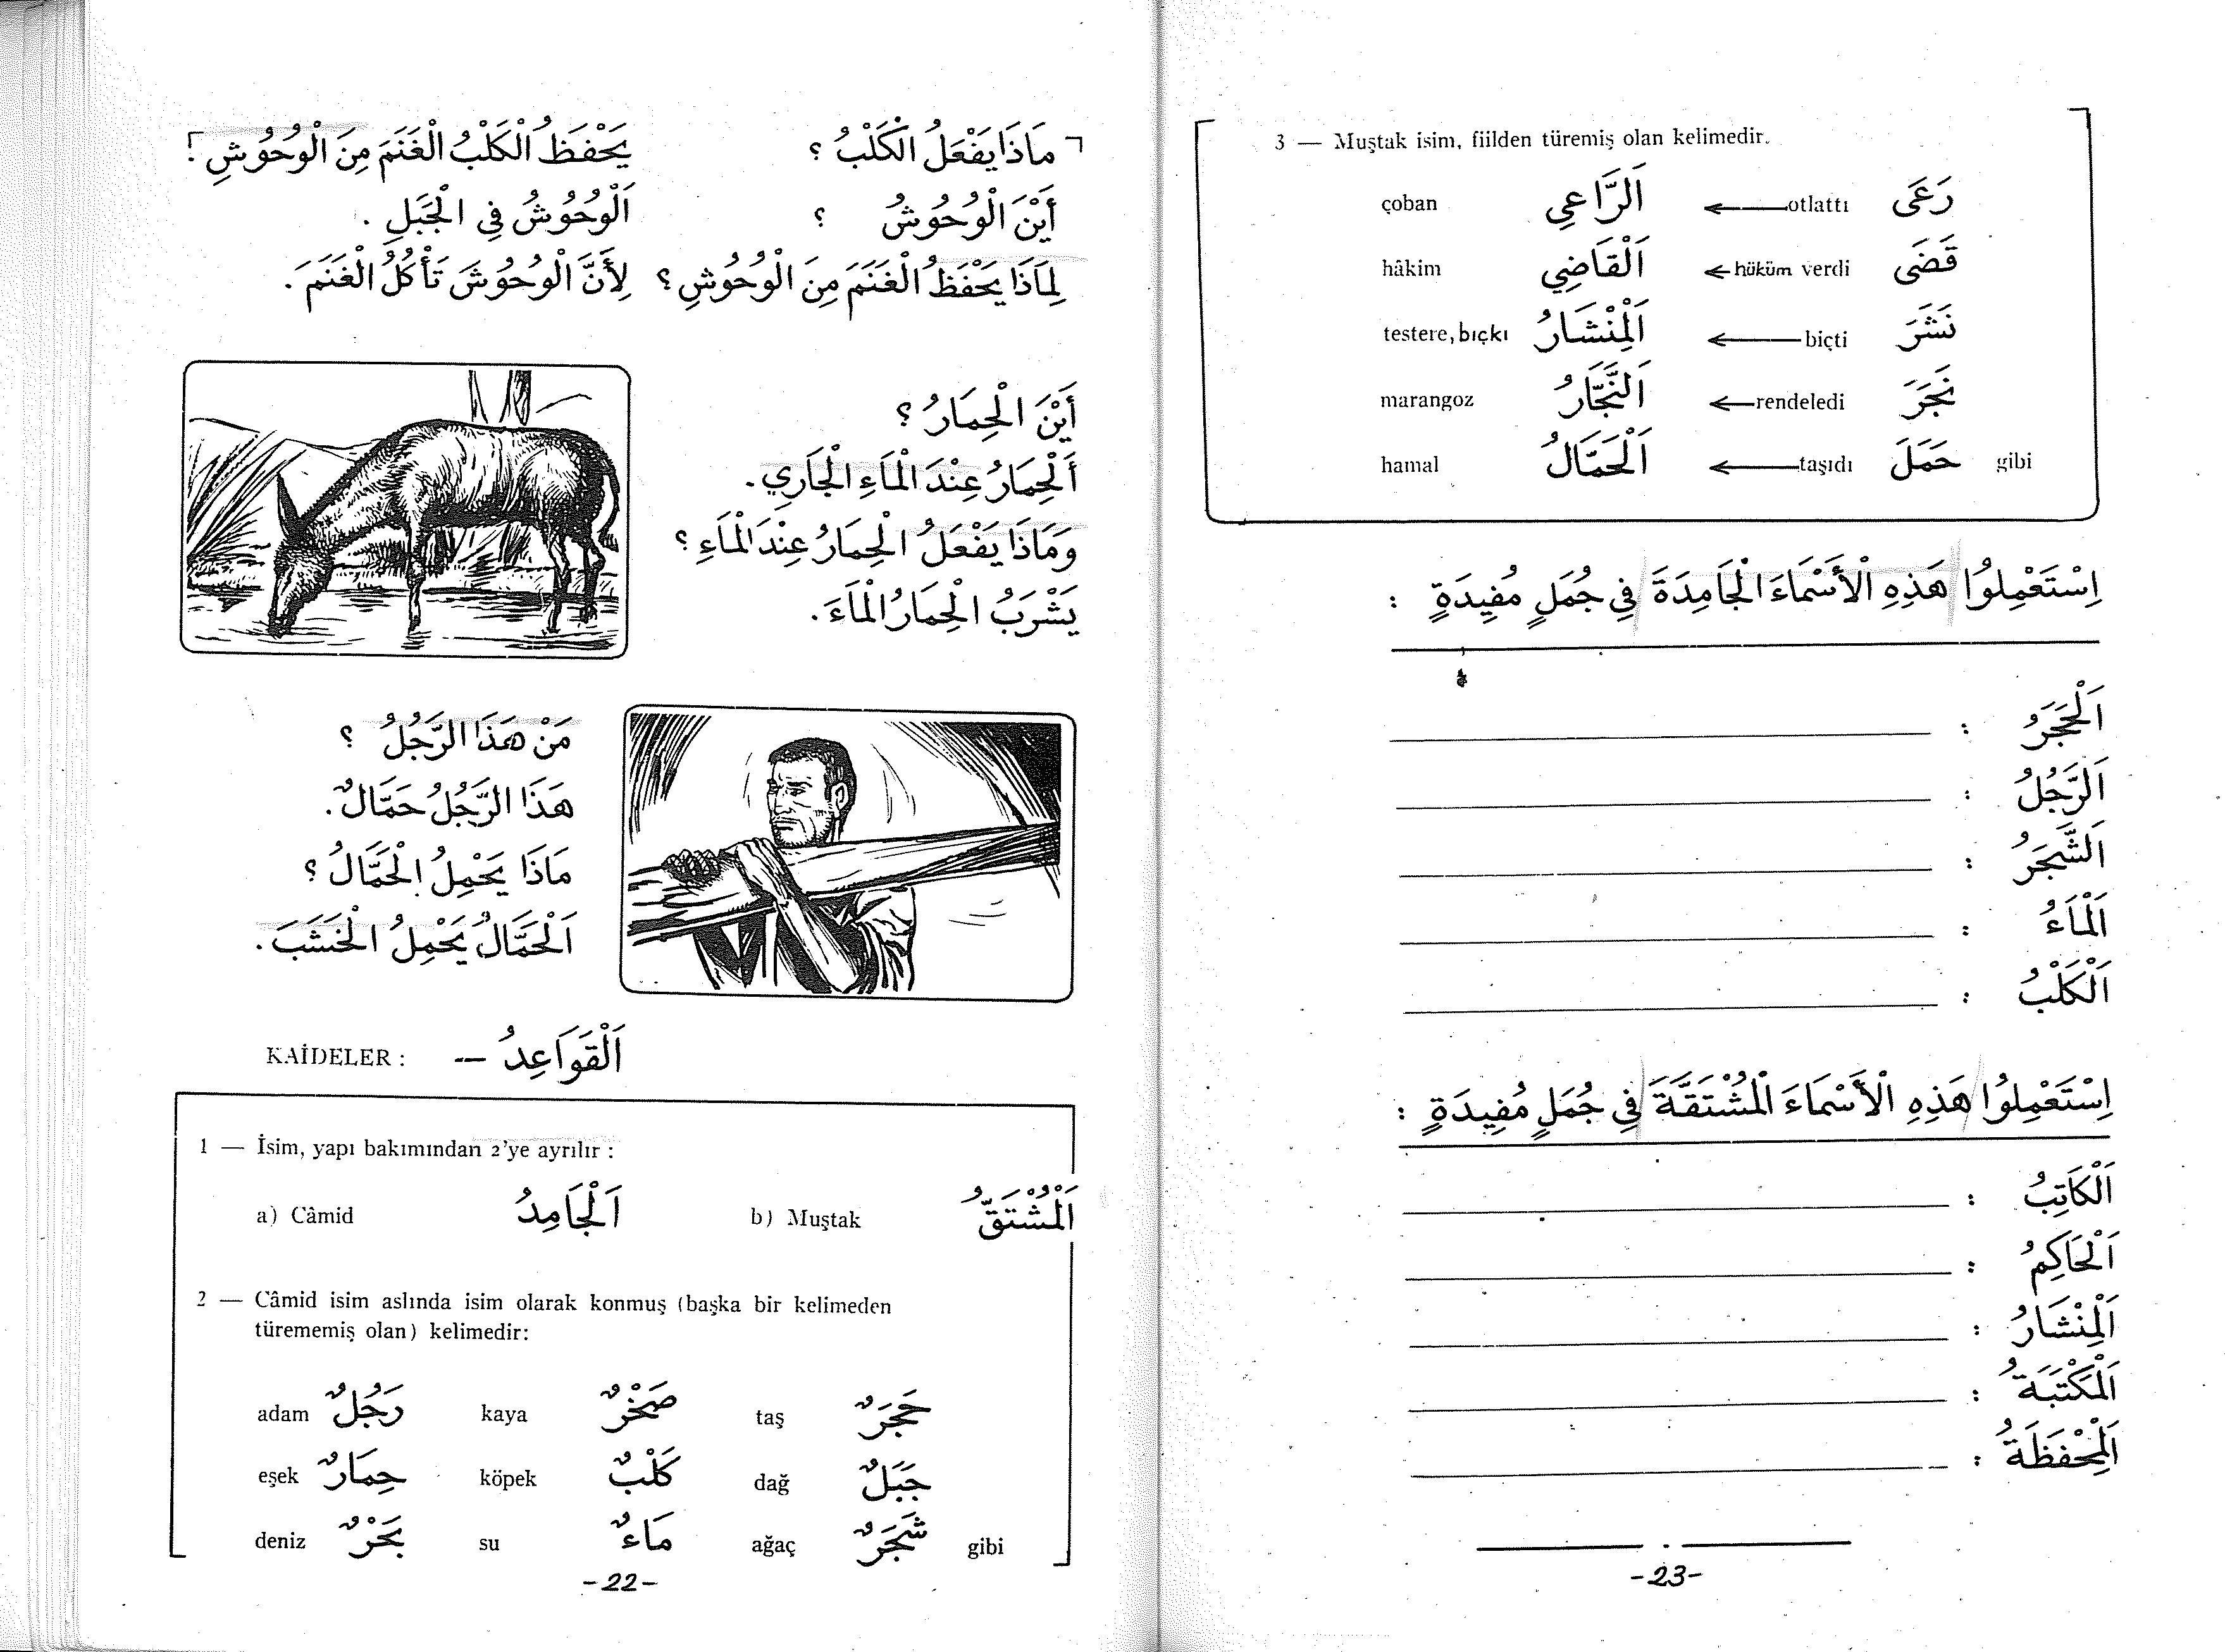 مَاذَا يَفْعَلُ الْكَلْبُ ؟ يَحْفَظُ الْكَلْبُ الْغَنَمَ مِنَ الْوُحُوشِ .
أَيْنَ الْوُحُوشُ ؟ اَلْوُحُوشُ فِي الْجَبَلِ .
لِمَاذَا يَحْفَظُ الْغَنَمَ مِنَ الْوُحُوشِ ؟ لِأَنَّ الْوُحُوشَ تَأْكُلُ الْغَنَمَ .
أَيْنَ الْحِمَارُ ؟
اَلْحِمَارُ عِنْدَ الْمَاءِ الْجَارِي .
وَمَاذَا يَفْعَلُ الْحِمَارُ عِنْدَ الْمَاءِ ؟
يَشْرَبُ الْحِمَارُ الْمَاءَ .
مَنْ هَذَا الرَّجُلُ ؟
هَذَا الرَّجُلُ حَمَّالٌ .
مَاذَا يَحْمِلُ الْحَمَّالُ ؟
اَلْحَمَّالُ يَحْمِلُ الْخَشَبَ .
KAİDELER : — اَلْقَوَاعِدُ
1 — İsim, yapı bakımından 2'ye ayrılır :
a) Câmid اَلْجَامِدُ b) Muştak اَلْمُشْتَقُّ
2 — Câmid isim aslında isim olarak konmuş (başka bir kelimeden
türememiş olan) kelimedir:
adam رَجُلٌ kaya صَخْرٌ taş حَجَرٌ
eşek حِمَارٌ köpek كَلْبٌ dağ جَبَلٌ
deniz بَحْرٌ su مَاءٌ ağaç شَجَرٌ gibi
-22-
3 — Muştak isim, fiilden türemiş olan kelimedir.
çoban اَلرَّاعِي ← otlattı رَعَى
hâkim اَلْقَاضِي ← hüküm verdi قَضَى
testere, bıçkı اَلْمِنْشَارُ ← biçti نَشَرَ
marangoz اَلنَّجَّارُ ← rendeledi نَجَرَ
hamal اَلْحَمَّالُ ← taşıdı حَمَلَ gibi
اِسْتَعْمِلُوا هَذِهِ الْأَسْمَاءَ الْجَامِدَةَ فِي جُمَلٍ مُفِيدَةٍ :
اَلْحَجَرُ :
اَلرَّجُلُ :
اَلشَّجَرُ :
اَلْمَاءُ :
اَلْكَلْبُ :
اِسْتَعْمِلُوا هَذِهِ الْأَسْمَاءَ الْمُشْتَقَّةَ فِي جُمَلٍ مُفِيدَةٍ :
اَلْكَاتِبُ :
اَلْحَاكِمُ :
اَلْمِنْشَارُ :
اَلْمَكْتَبَةُ :
اَلْمِحْفَظَةُ :
-23-